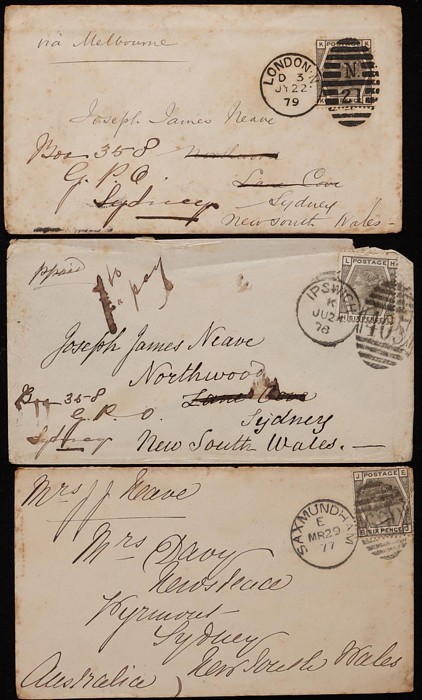 via Melbourne
LONDON·N
D 3
JY 22
79
K POSTAGE K
N
21
Joseph James Neave
Box 358
G.P.O.
Sydney
Northwood
Lane Cove
Sydney
New South Wales –
ppaid
to pay
IPSWICH
K
JU 24
78
L POSTAGE H
Joseph James Neave
Northwood
Lane Cove
Box 358
G. P. O.
Sydney
Sydney
New South Wales. –
Mrs J J Neave
SAXMUNDHAM
E
MR 29
77
J POSTAGE E
E SIX PENCE J
Mrs Davy
Newstence
Pyrmont
Sydney
New South Wales
Australia